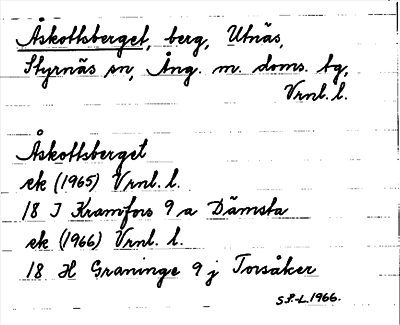 Åskottsberget, berg, Utnäs,
Styrnäs sn, Ång. m. doms. tg,
Vrnl. l.
Åskottsberget
ek (1965) Vrnl. l.
18 I Kramfors 9 a Dämsta
ek (1966) Vrnl. l.
18 H Graninge 9 j Torsåker
S.P.-L. 1966.